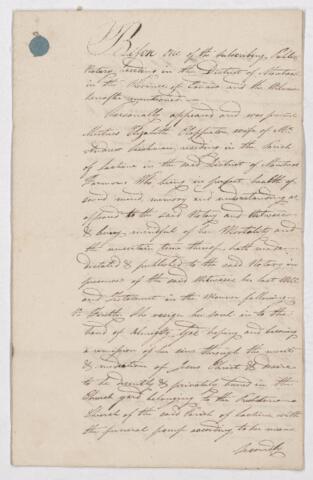 Before one of the subscribing Public
Notary, residing in the District of Montreal
in the Province of Canada and the Witnesses
hereafter mentioned
Personally appeared and was present
Mistriss Elizabeth wife of Mr.
residing in the Parish
of Lachine in the said District of Montreal
Farmer. Who being in perfect health of
sound mind, memory and understanding as
appeared to the said Notary and Witnesses
& being mindful of her Mortality and
the uncertain time thereof, hath made
dictated & published to the said Notary in
presence of the said Witnesses her last Will
and Testament in the Manner following
Firstly. She resign her soul in to the
hand of Almighty God hoping and
a remission of her sins through the merits
& mediation of Jesus Christ & desire
to be decently & privately buried in the
Church yard belonging to the
Church of the said Parish of Lachine with
the funeral pomp according to her means
Secondly